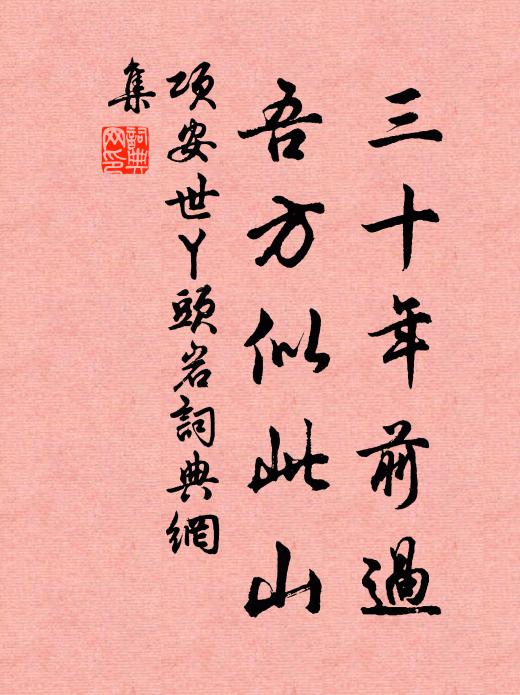 三十年前過
吾方似此山
項安世丫頭岩詞典網
集
詞典
网印